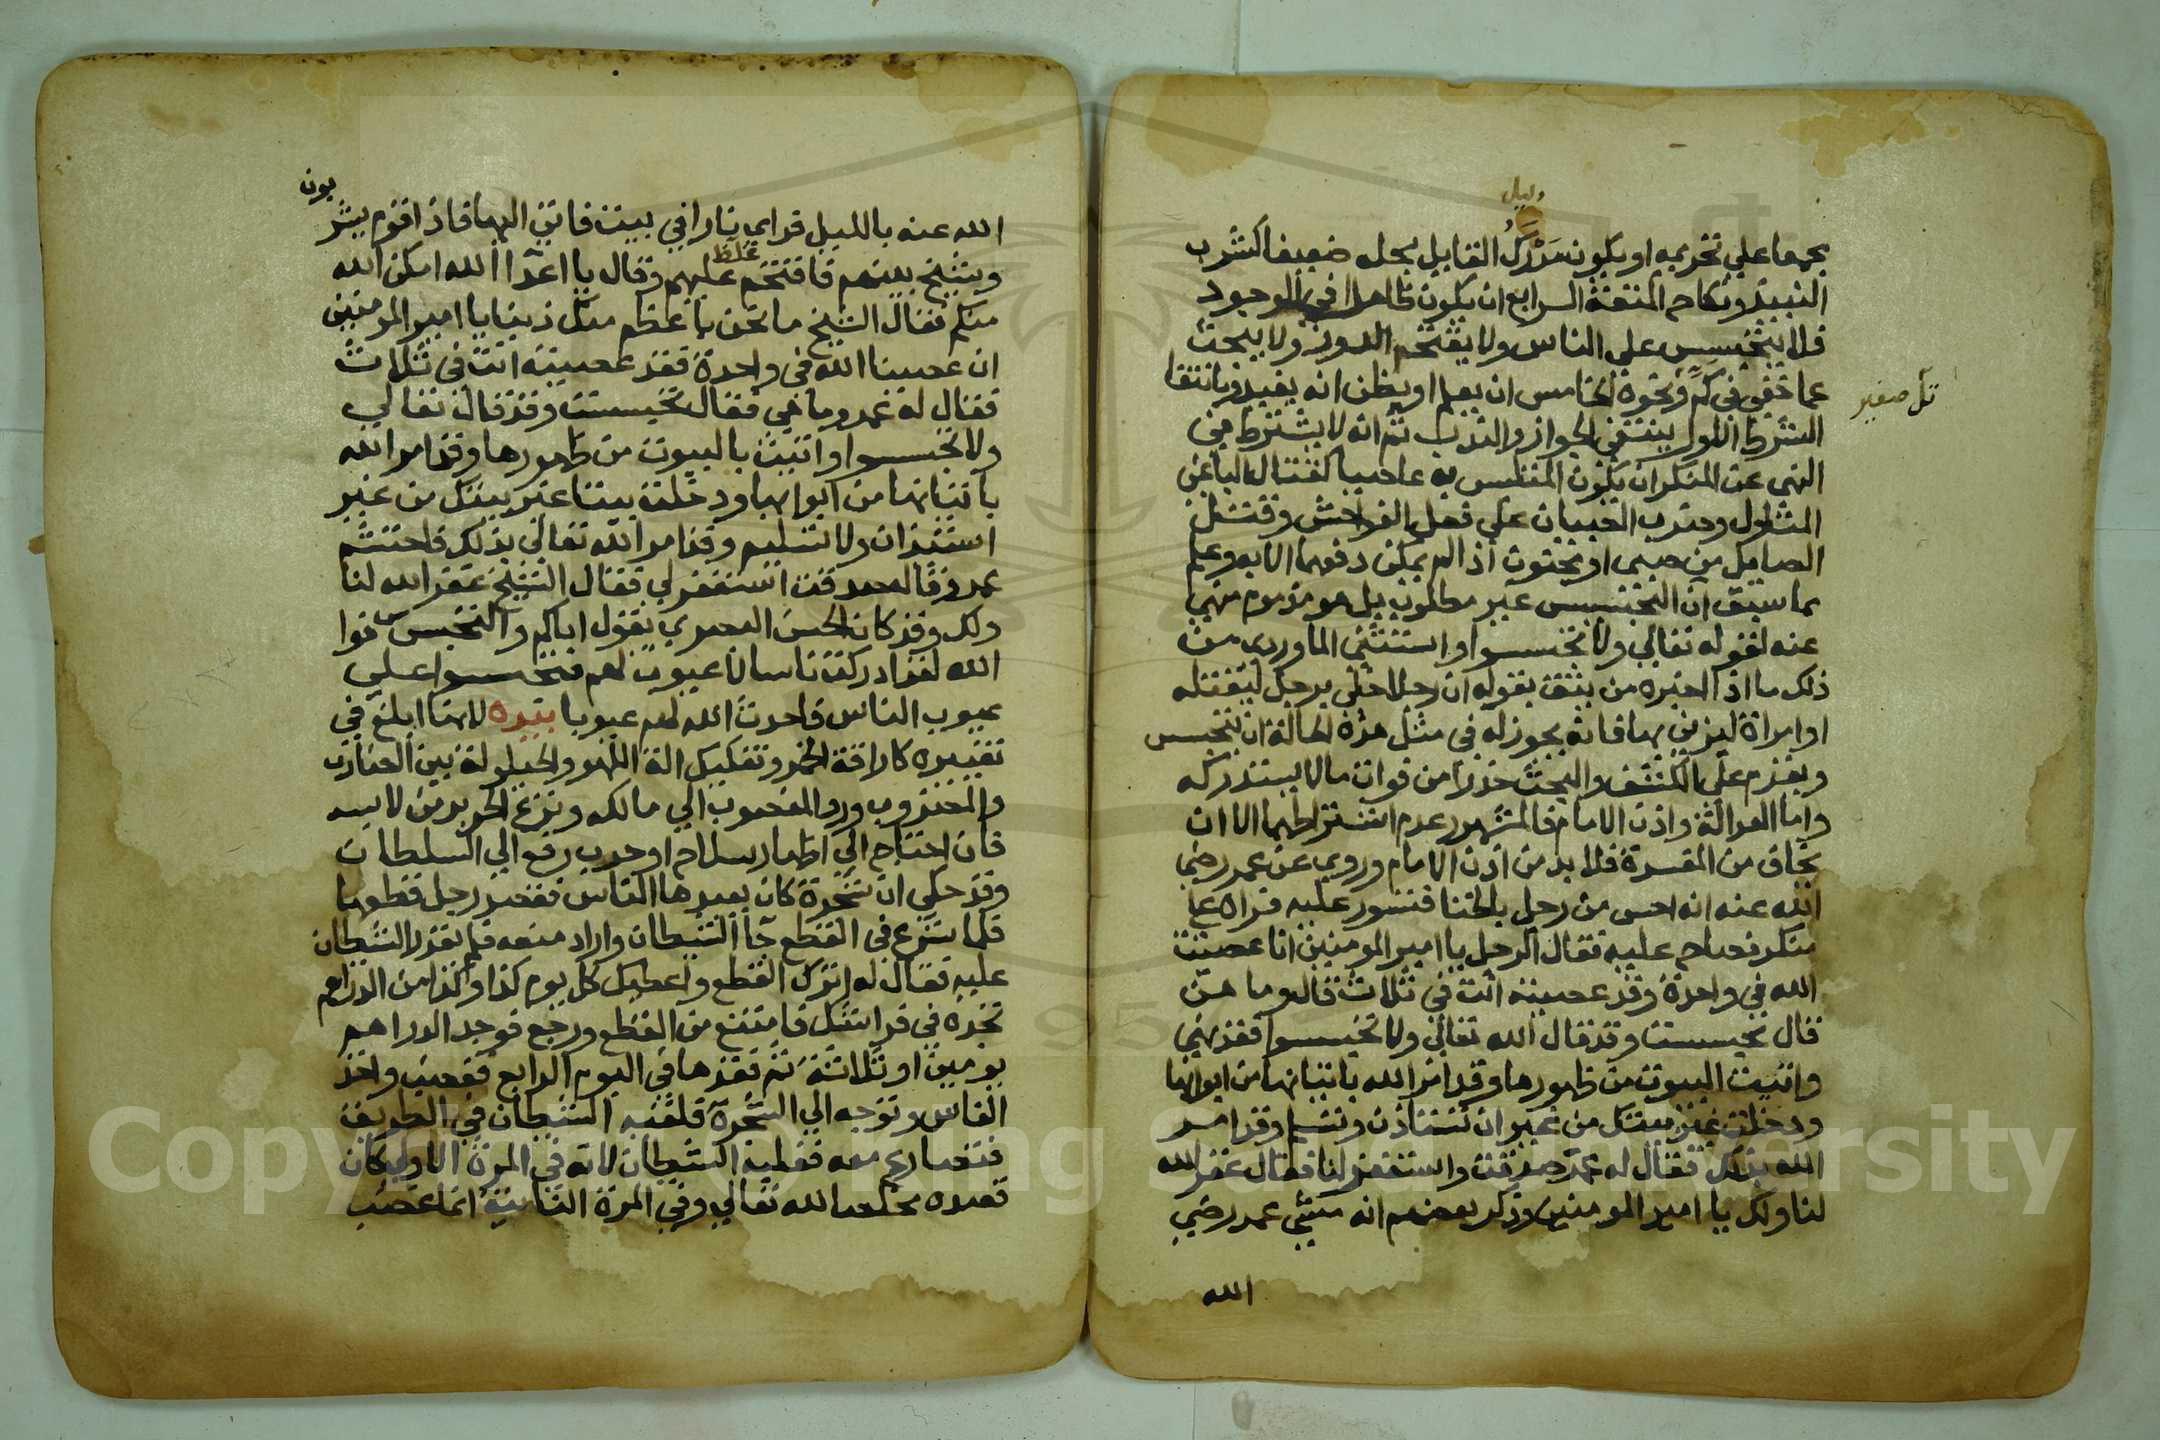 دليل
مجمعا علي تحريمه او يكون مدرك القايل بحله ضعيفا كشرب
النبيذ ونكاح المتعة الرابع ان يكون ظاهرا في الوجود
فلا يتجسس علي الناس ولا يقتحم الدور ولا يبحث
عما خفي في كم ونحوه الخامس ان يعلم او يظن انه يفيد فبانتفا
تل صغير
الشرط الاول ينتفي الجواز والندب ثم انه لا يشترط في
النهي عن المنكر ان يكون المتلبس به عاصيا كقتال الباغي
المتاول وضرب الصبيان علي فعل الفواحش وقتل
الصايل من صبي او مجنون اذا لم يمكن دفعهما الا به وعلم
مما سبق ان التجسس غير مطلوب بل هو مذموم منهي
عنه لقوله تعالي ولا تجسسوا واستثني الماوردي من
ذلك ما اذا اخبره من يثق بقوله ان رجلا خلي برجل ليقتله
او امراة ليزني بها فانه يجوز له في مثل هذه الحالة ان يتجسس
ويقدم علي الكشف والبحث حذرا من فوات ما لا يستدركه
واما العدالة واذن الامام فالمشهور عدم اشتراطهما الا ان
يخاف من المفسدة فلا بد من اذن الامام وروي عن عمر رضي
الله عنه انه احس من رجل بالخنا فتسور عليه فراه علي
منكر فصاح عليه فقال الرجل يا امير المومنين انا عصيت
الله في واحدة وقد عصيته انت في ثلاث قال وما هن
قال تجسست وقد قال الله تعالي ولا تجسسوا فقد نهي
واتيت البيوت من ظهورها وقد امر الله باتيانها من ابوابها
ودخلت غير بيتك من غير ان تستاذن وتسلم وقد امر
الله بذلك فقال له عمر صدقت واستغفر لنا فقال غفر الله
لنا ولك يا امير المومنين وذكر بعضهم انه مشي عمر رضي
الله
الله عنه بالليل فراي نارا في بيت فاتي اليها فاذا قوم يشر
بون
وشيخ بينهم فاقتحم عليهم وقال يا اعدا الله امكن الله
غلظ
منكم فقال الشيخ ما نحن باعظم منك ذنبا يا امير المومنين
ان عصينا الله في واحدة فقد عصيته انت في ثلاث
فقال له عمر وما هي فقال تجسست وقد قال تعالي
ولا تجسسوا واتيت بالبيوت من ظهورها وقد امر الله
باتيانها من ابوابها ودخلت بيتا غير بيتك من غير
استئذان ولا تسليم وقد امر الله تعالي بذلك فاحتشم
عمر وقال صدقت استغفر لي فقال الشيخ غفر الله لنا
ولك وقد كان الحسن البصري يقول اياكم والتجسس فوا
الله لقد ادركت ناسا لا عيوب لهم فتجسسوا علي
عيوب الناس فاحدث الله لهم عيوبا بيده لانها ابلغ في
تغييره كاراقة الخمر وتفكيك الة اللهو والحيلولة بين الضارب
والمضروب ورد المغصوب الي مالكه ونزع الحرير من لابسه
فان احتاج الي اظهار سلاح او حرب رفع الي السلطان
وقد حكي ان شجرة كان يعبدها الناس فقصد رجل قطعها
فلما شرع في القطع جا الشيطان واراد منعه فلم يقدر الشيطان
عليه فقال له اترك القطع واعطيك كل يوم كذا وكذا من الدراهم
تجده في فراشك فامتنع من القطع ورجع فوجد الدراهم
يومين او ثلاثة ثم فقدها في اليوم الرابع فغضب واخذ
الفاس وتوجه الي الشجرة فلقيه الشيطان في الطريق
فتصارع معه فغلبه الشيطان لانه في المرة الاولي كان
قصده مخلصا لله تعالي وفي المرة الثانية انما غضب
Copyright © King Saud University